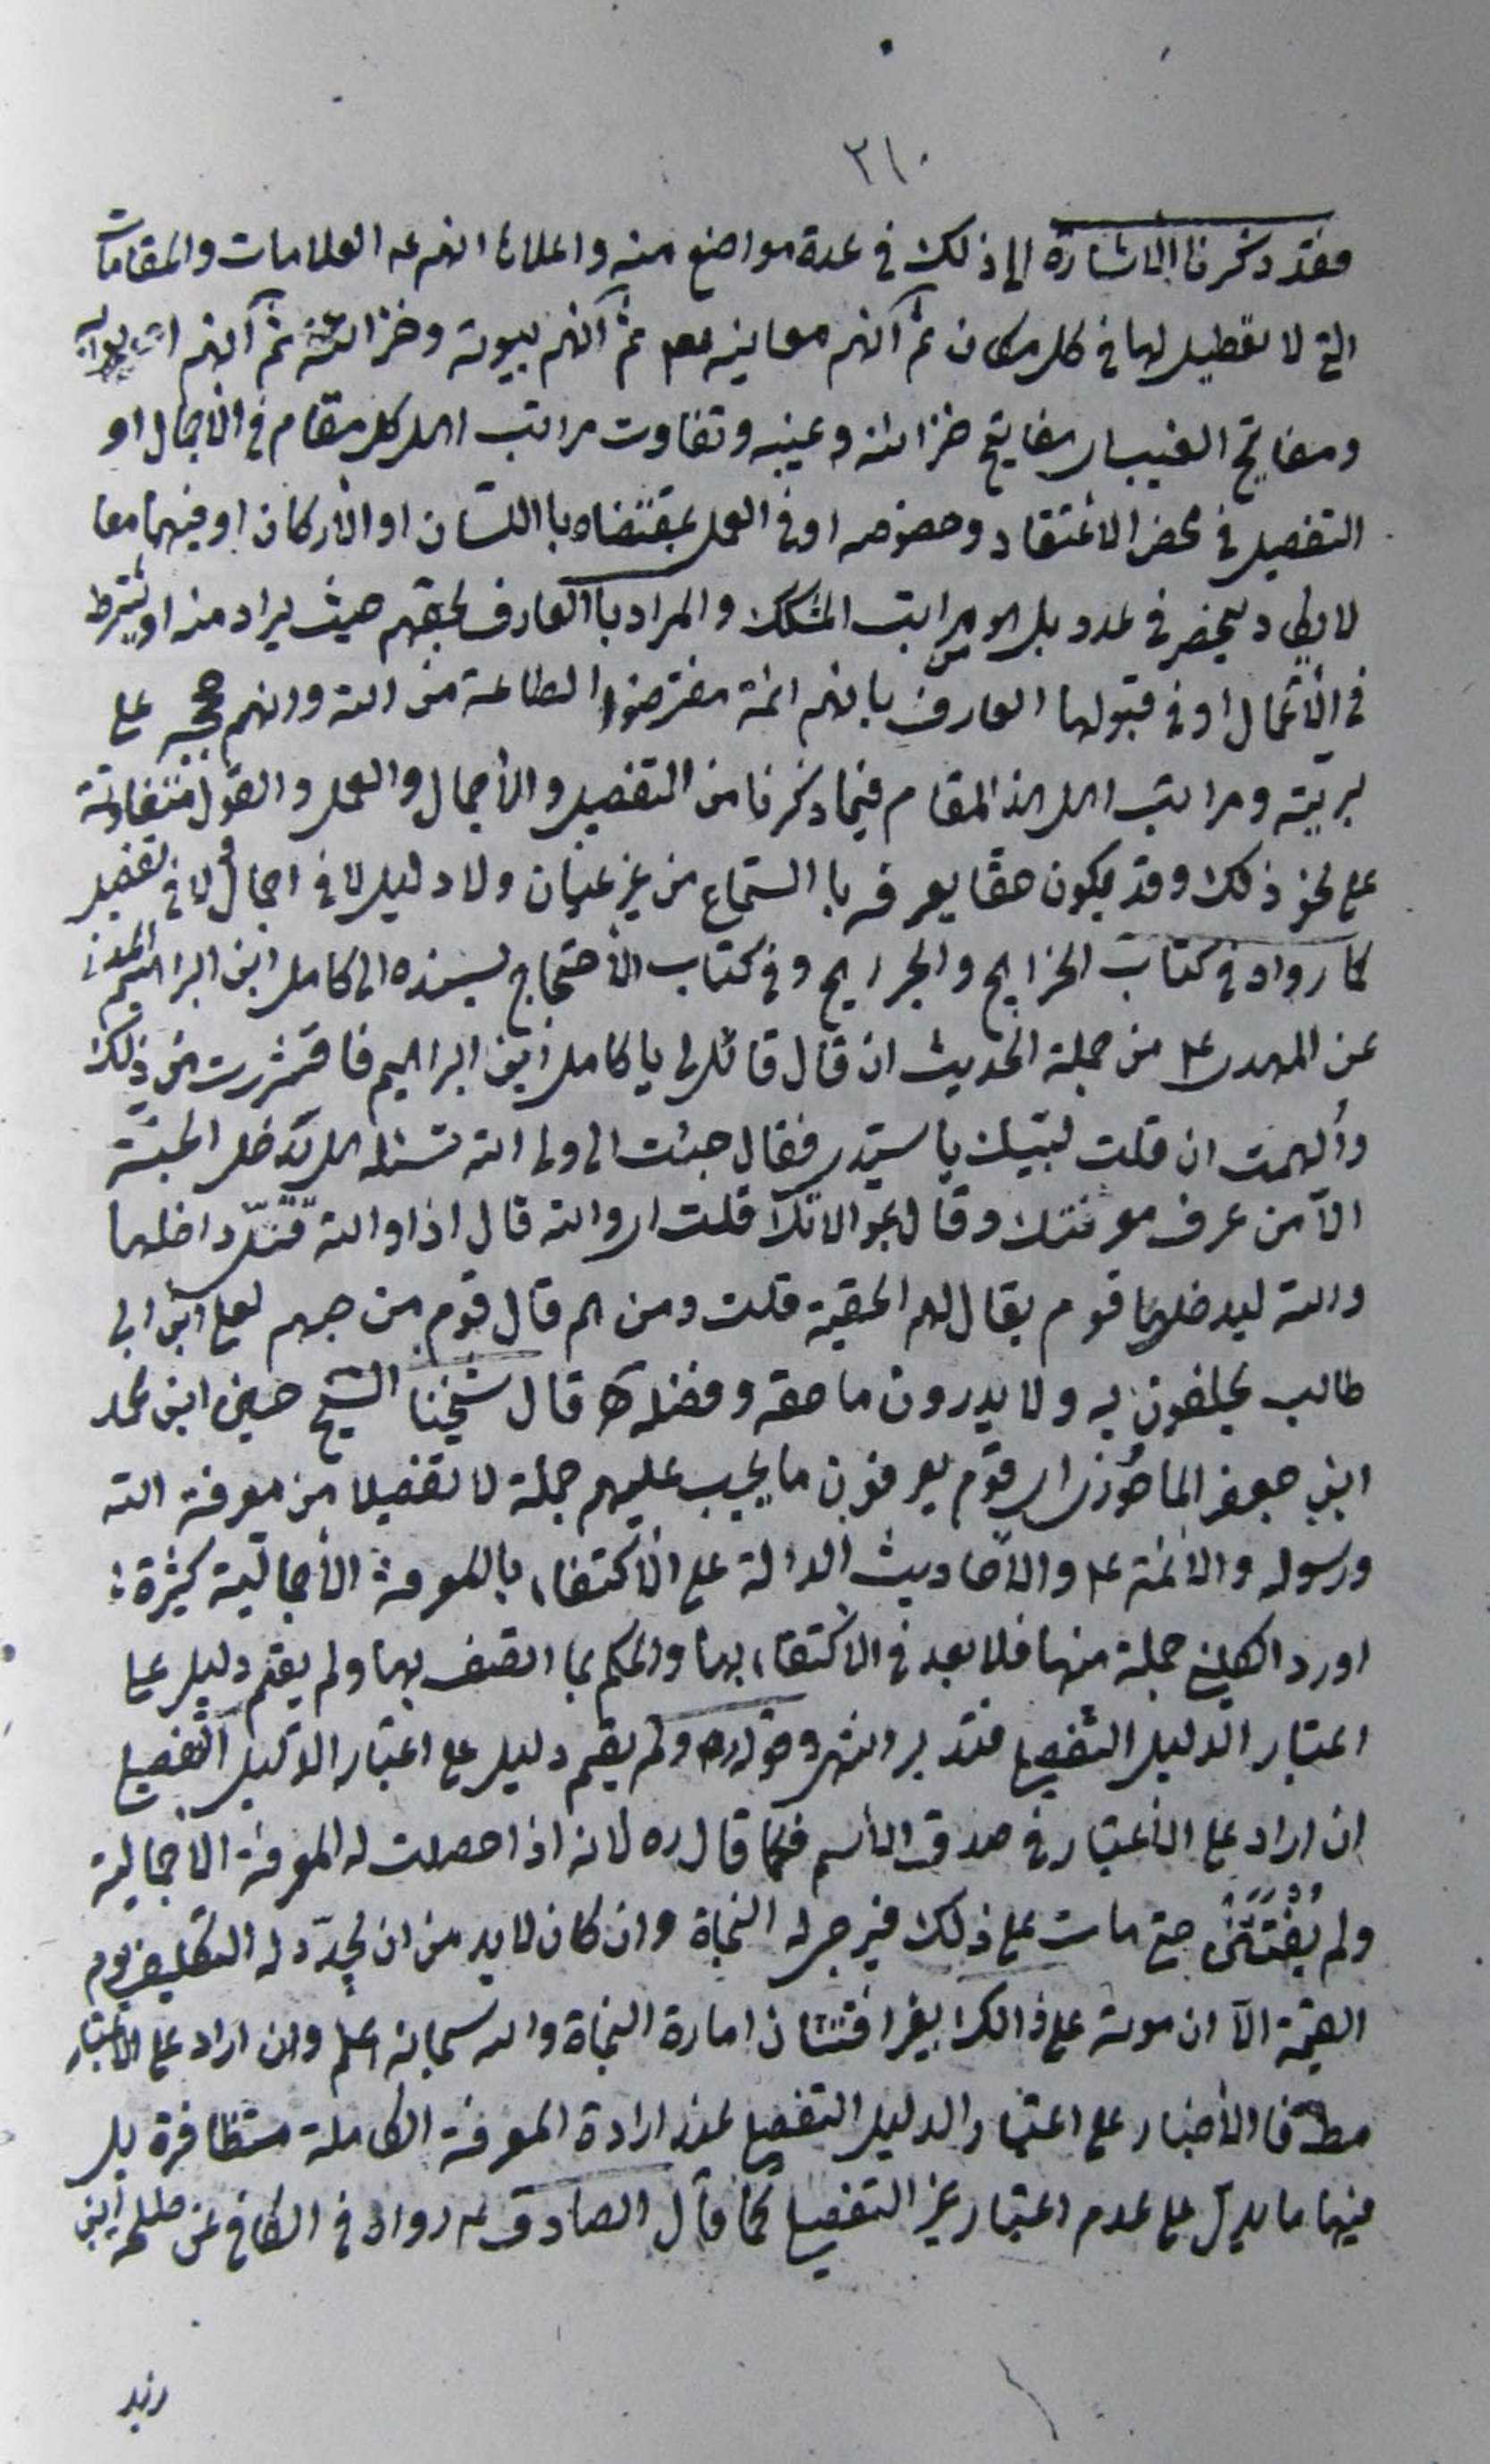 ٢١٠
فقد ذكرنا الاشارة الى ذلك فى عدة مواضع منه واعلاها انهم عه العلامات والمقامات
التى لا تعطيل لها فى كل مكان ثم انهم معانيه ثم انهم بيوته وخزائنه ثم انهم ابوابه
ومفاتيح الغيب اى مفاتيح خزائنه وغيبه وتفاوت مراتب اهل كل مقام فى الأجمال او
التفصيل فى محض الاعتقاد وخصوصه او فى العمل بمقتضاه باللسان او الأركان او فيهما معا
لا يكاد ينحصر فى عدد بل هو من مراتب المشكك والمراد بالعارف بحقهم حيث يراد منه او يشترط
فى الأعمال او فى قبولها العارف بانهم ائمة مفترضوا الطاعة من الله وانهم حججه على
بريته ومراتب اهل هذا المقام فيما ذكرنا من التفصيل والأجمال والعمل والقول متفاوتة
على نحو ذلك وقد يكون حقا يعرفه با السماع من غير عيان ولا دليل لا فى اجمال ولا فى تفصيل
كما رواه فى كتاب الخرايج والجرايح وفى كتاب الأحتجاج بسنده الى كامل ابن ابراهيم المدنى
عن المهدى ع من جملة الحديث ان قال قائل لى يا كامل ابن ابراهيم فاقشعررت من ذلك
وألهمت ان قلت لبيك يا سيدى فقال جئت الى ولى الله تسئله هل يدخل الجنة
الا من عرف معرفتك وقال بمقالتك قلت اى والله قال اذا والله يقل داخلها
والله ليدخلها قوم يقال لهم الحقية قلت ومن هم قال قوم من حبهم لعلى ابن ابى
طالب يحلفون به ولا يدرون ما حقه وفضله قال شيخنا الشيخ حسين ابن محمد
ابن جعفر الماحوزى اى قوم يعرفون ما يجب عليهم جملة لا تفصيلا من معرفة الله
ورسوله والأئمة ع والأحاديث الدالة على الأكتفاء بالمعرفة الأجمالية كثيرة
اورد الكلينى جملة منها فلا بعد فى الاكتفاء بها والحكم بما اتصف بها ولم يقم دليل على
اعتبار الدليل التفصيلى فتدبر انتهى وقوله ره ولم يقم دليل على اعتبار الدليل التفصيلى
ان اراد على الأعتبار فى صدق الأسم فكما قال ره لانه اذا حصلت له المعرفة الأجمالية
ولم يفتتن حتى مات على ذلك فيرجى له النجاة وان كان لا بد من ان يجدد له التكليف يوم
القيمة الا ان موته على ذالك بغير افتتان امارة النجاة والله سبحانه اعلم وان اراد على الأعتبار
مطلقا فالأخبار على اعتبار الدليل التفصيلى عند ارادة المعرفة الكاملة متظافرة بل
فيها ما يدل على عدم اعتبار غير التفصيلى كما قال الصادق ع رواه فى الكافى عن طلحة ابن
زيد